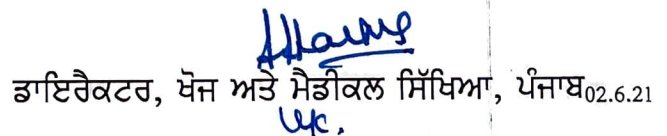 ਡਾਇਰੈਕਟਰ, ਖੋਜ ਅਤੇ ਮੈਡੀਕਲ ਸਿੱਖਿਆ, ਪੰਜਾਬ02.6.21